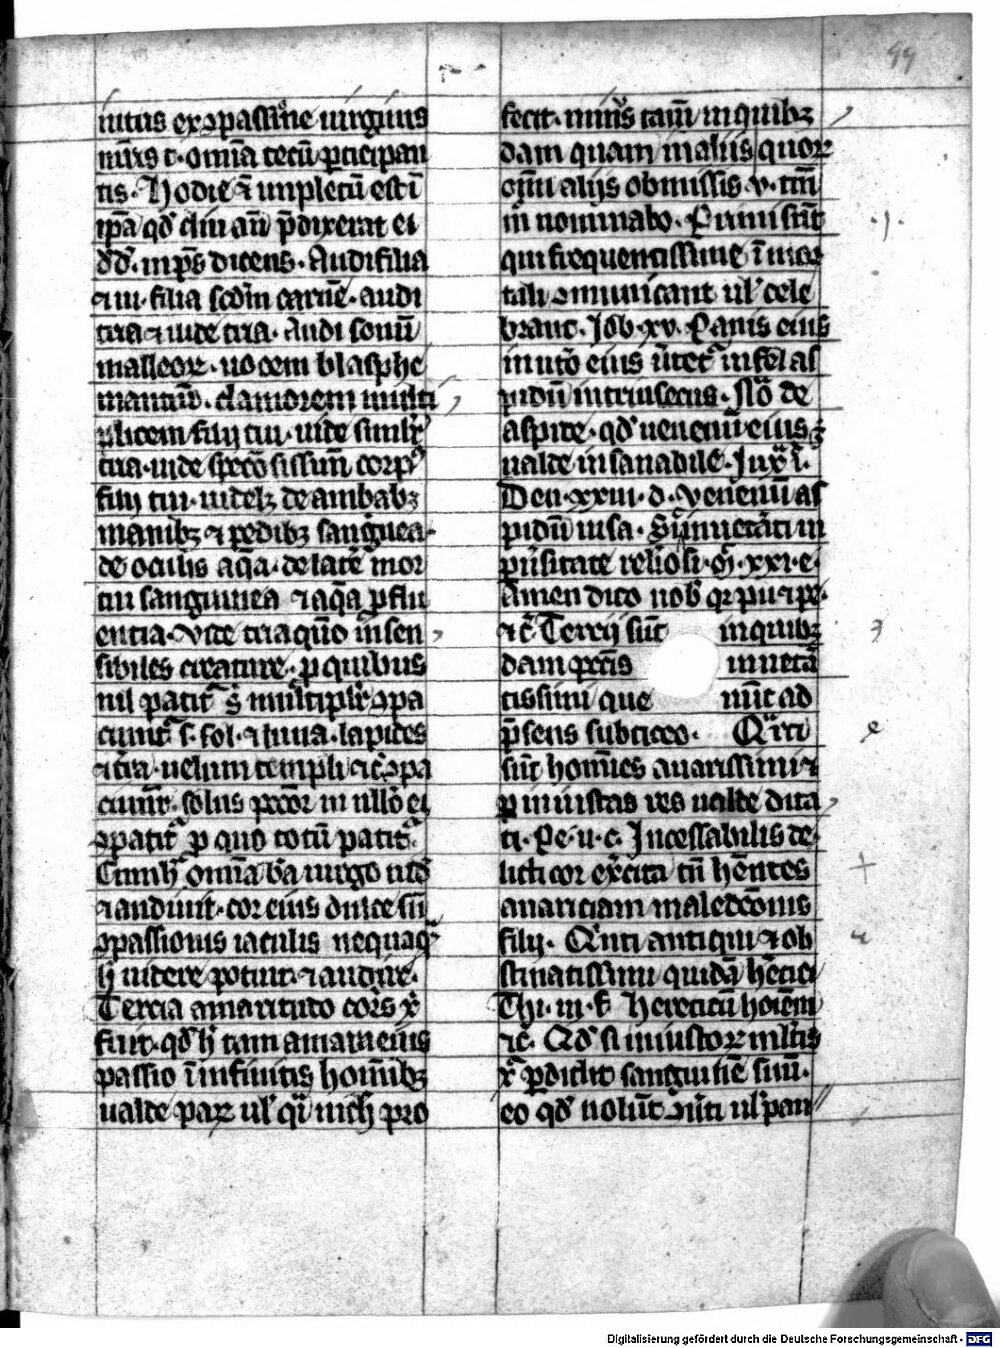 99
iutus ex ɔpassiõne uirginis
mr̃is t. omĩa tecũ ꝑticipan
tis. Hodie ẽ impletũ est ĩ
ip̃a qd̾ diu an̄ p̃dixerat ei
dd̾. in ps̾ dicens. Audi filia
⁊ ui. filia scd̾m carnẽ. audi
tria ⁊ uide tria. Audi sonũ
malleoꝝ. uocem blasphe
mantiũ. clamorem multi
plicem filij tui. uide simlr̾
tria. uide specõsissimũ corpꝰ
filij tui. uidelꝫ de ambabꝫ
manibꝫ ⁊ pedibꝫ sanguiea.
de oculis aq̃a. de latẽ mor
tui sanguinea ⁊ aq̃a ꝓflu
entia. Vide tria quõ in sen
sibiles creature. ꝑ quibus
nil patit᷑ s̾ multiplr̾ ɔpa
ciunt᷑ s. sol. ⁊ luna. lapides
⁊ tr̃a. uelum templi ⁊c̾ ɔpa
ciunt᷑. solus pcc̃or in nullo ei
ɔpatit᷑ ꝓ quo totũ patit᷑.
Cum h̾ omĩa bã uirgo uid̾
⁊ audiuit. cor eius dulce sñ
ɔpassionis iaculis nequaq̃
h̾ uidere potuit. ⁊ audire.
Tercia amaritudo cord̾s xp̃
fuit. qd̾ h̾ tam amara eius
passio ĩ infinitis homĩbꝫ
ualde paꝝ ul̾ q̃i nich̾ pro
fecit. minꝰ tam̃ in quibꝫ
dam quam in aliis quoꝝ
om̃i alijs obmissis. v. tm̃
m̃ nominabo. Primi sũt
qui frequentissime ĩ mor
tali ɔmunicant ul̾ cele
brant. Job. xx. Panis eius
in utõ eius ũtet᷑ in fel as
pidũ intrinsecus. Nõ de
aspide. qd̾ uenenũ eius ẽ
ualde insanabile. Juxᷓ i.
Deu. xxxii. d. Venenũ as
pidũ insa. S̾ i inuet̃ati in
ꝑuersitate relĩosi. G̾. xxi. e.
Amen dico nob̾ qꝛ pu ⁊ pe.
⁊c̾ Tercij sũt in quibꝫ
dam pcc̃is inuet̃a
tissimi que nũc ad
p̃sens subticeo. Qᷓrti
sũt homĩes auarissimi ⁊
ꝑ iniustas res ualde dita
ti. Pe. ii. c. Incessabilis de.
licti cor ex̾cita tñ hẽntes
auariciam maledcõnis
filij. Qͥnti antiqui ⁊ ob
stinatissimi quidã hẽtici
Thi. iii. f. Hereticũ hoĩem
⁊c. Qd̾ si iniustoꝝ multis
xp̃ ꝑdidit sanguinẽ suũ.
eo qd̾ nolũt ɔuti ul̾ pau
Digitalisierung gefördert durch die Deutsche Forschungsgemeinschaft - DFG